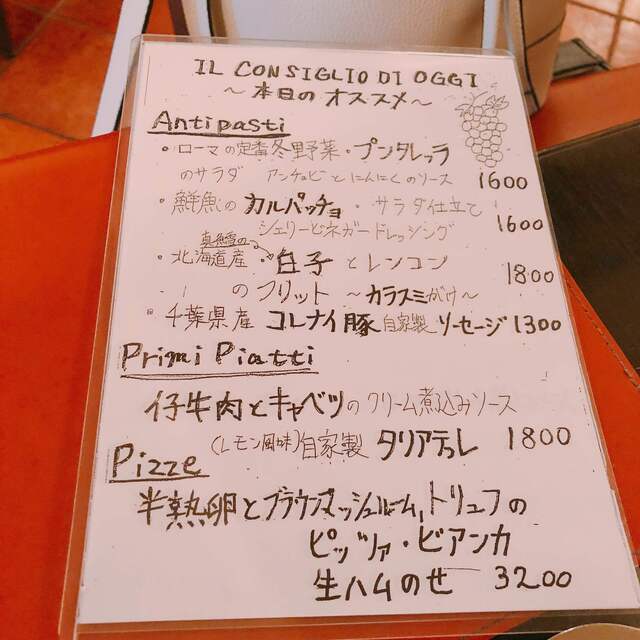 IL CONSIGLIO DI OGGI
～本日のオススメ～
Antipasti
・ローマの定番冬野菜・プンタレッラ
のサラダ アンチョビとにんにくのソース 1600
・鮮魚のカルパッチョ・サラダ仕立て
シェリービネガードレッシング 1600
真鱈の
・北海道産・白子とレンコン
のフリット ～カラスミがけ～ 1800
・千葉県産 コレナイ豚 自家製 ソーセージ 1300
Primi Piatti
仔牛肉とキャベツのクリーム煮込みソース
(レモン風味) 自家製 タリアテッレ 1800
Pizze
半熟卵とブラウンマッシュルーム、トリュフの
ピッツァ・ビアンカ
生ハムのせ 3200